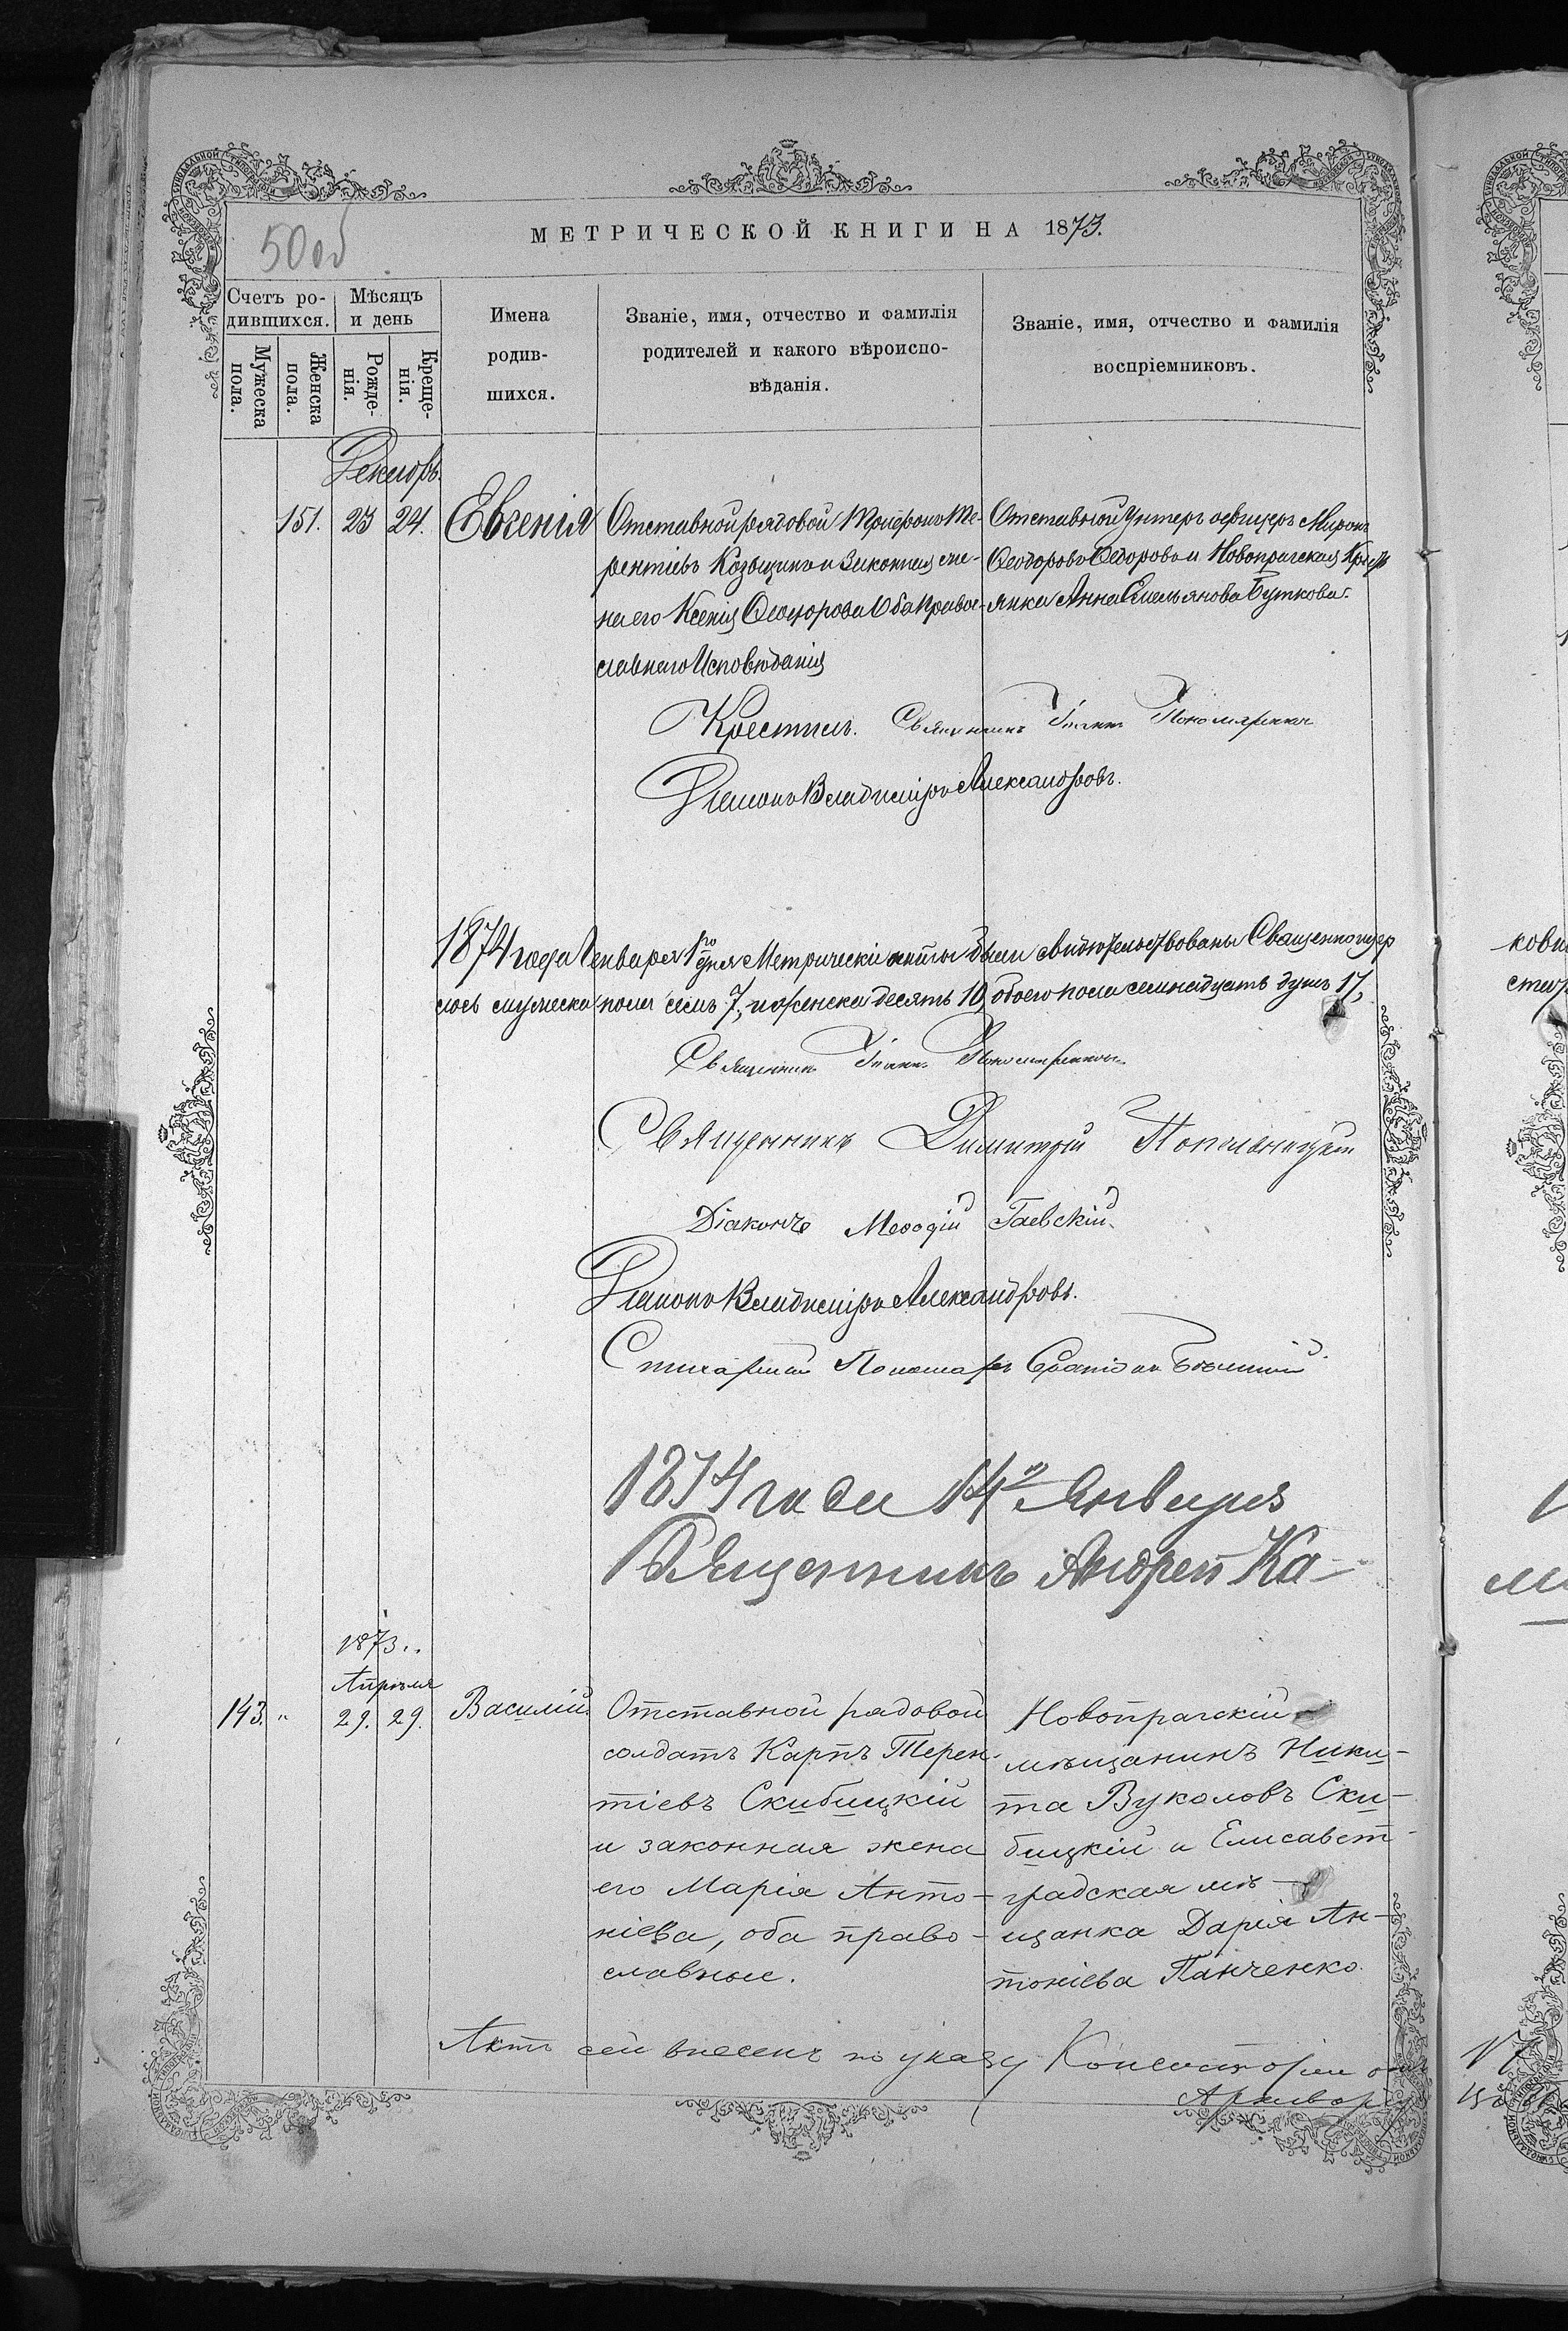 50 об
МЕТРИЧЕСКОЙ КНИГИ НА 1873.
Счетъ ро-
дившихся.
Мѣсяцъ
и день
Мужеска
пола.
Женска
пола.
Рожде-
нія.
Креще-
нія.
Имена
родив-
шихся.
Званіе, имя, отчество и фамилія
родителей и какого вѣроиспо-
вѣданія.
Званіе, имя, отчество и фамилія
воспріемниковъ.
Декабрь.
151. 23 24. Евгенія
Отставной рядовой Трифонъ Те-
рентіевъ Козъ и законная же-
на его Ксенія Ѳеодорова Оба Право-
славнаго Исповѣданія
Отставной Унтеръ офицеръ Миронъ
Ѳеодоровъ Ѳедоровъ и Новопражская Крестъ
янка Анна Емельянова Буткова.
Крестилъ. Священникъ Іоаннъ Пономаренко
Діаконъ Владиміръ Александровъ.
1874 года Января 1го дня Метрическія книги были свидѣтельствованы Священно
лось мужеска пола семь 7, женска десять 10, обоего пола семнадцать душъ 17,
Священникъ Іоаннъ Пономаренко
Священникъ Димитрій
Діаконъ Меѳодій Гаевскій.
Діаконъ Владиміръ Александровъ.
Стихарный Пономарь
1874 года 14го Января
Священникъ Андрей Ка-
1873..
Апрѣля
143. " 29. 29. Василій.
Отставной рядовой
солдатъ Карпъ Терен-
тіевъ Скибицкій
и законная жена
его Марія Анто-
ніева, оба право-
славные.
Новопражскій
мѣщанинъ Ники-
та Вуколовъ Ски-
бицкій и Елисавет-
градская мѣ-
щанка Дарія Ан-
тоніева Панченко
Актъ сей внесенъ по указу Консисторіи